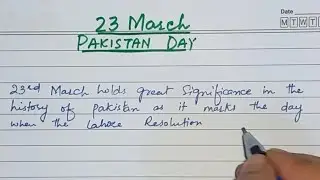 23 March
Date
M T W T
PAKISTAN DAY
23rd March holds great Significance in the
history of pakistan as it marks the day
when the Lahore Resolution